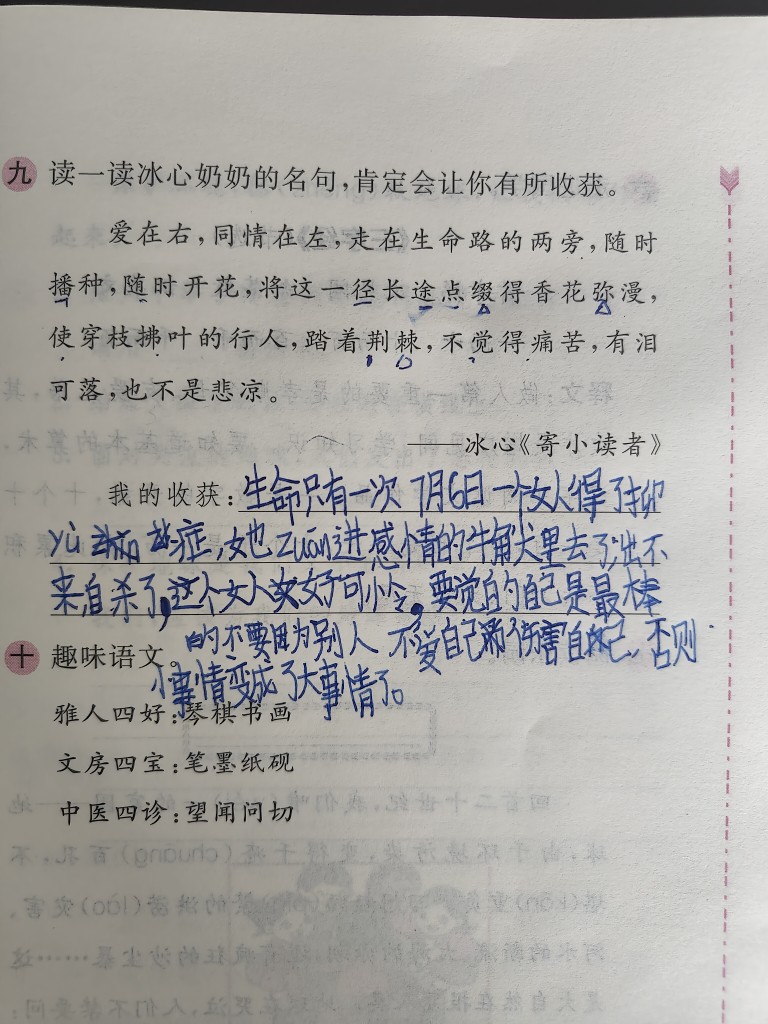 九 读一读冰心奶奶的名句，肯定会让你有所收获。
爱在右，同情在左，走在生命路的两旁，随时
播种，随时开花，将这一径长途点缀得香花弥漫，
使穿枝拂叶的行人，踏着荆棘，不觉得痛苦，有泪
可落，也不是悲凉。
——冰心《寄小读者》
我的收获：生命只有一次 7月6日一个女人得了抑
yù 症，她zuān进感情的牛角尖里去了，出不
来，自杀了，这个女人好可怜。要觉的自己是最棒
的不要因为别人 不爱自己而伤害自己，否则
十 趣味语文。
小事情变成了大事情了。
雅人四好：琴棋书画
文房四宝：笔墨纸砚
中医四诊：望闻问切